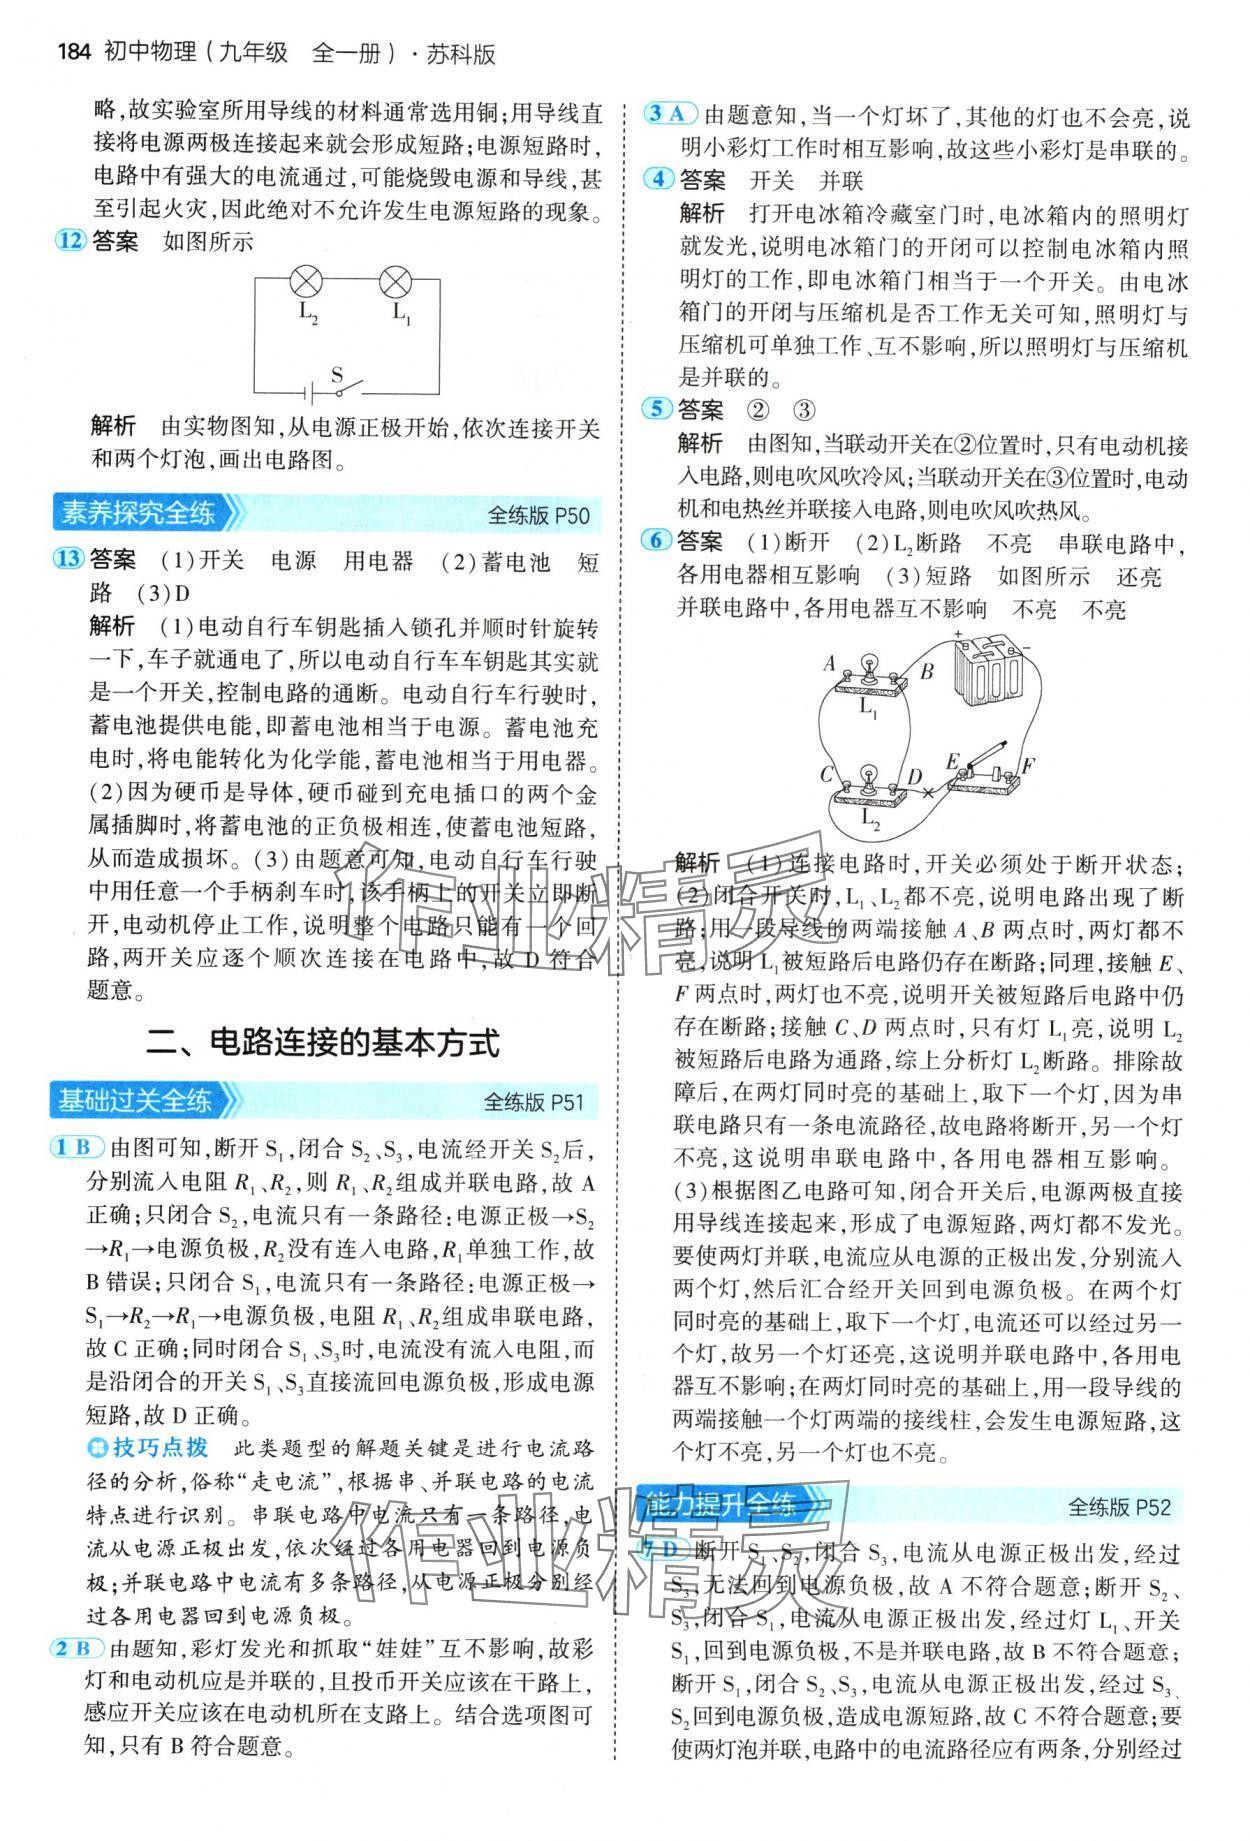 184 初中物理(九年级 全一册)·苏科版
略,故实验室所用导线的材料通常选用铜;用导线直
接将电源两极连接起来就会形成短路;电源短路时,
电路中有强大的电流通过,可能烧毁电源和导线,甚
至引起火灾,因此绝对不允许发生电源短路的现象。
12 答案 如图所示
L₂ L₁
S
解析 由实物图知,从电源正极开始,依次连接开关
和两个灯泡,画出电路图。
素养探究全练 全练版 P50
13 答案 (1)开关 电源 用电器 (2)蓄电池 短
路 (3)D
解析 (1)电动自行车钥匙插入锁孔并顺时针旋转
一下,车子就通电了,所以电动自行车车钥匙其实就
是一个开关,控制电路的通断。电动自行车行驶时,
蓄电池提供电能,即蓄电池相当于电源。蓄电池充
电时,将电能转化为化学能,蓄电池相当于用电器。
(2)因为硬币是导体,硬币碰到充电插口的两个金
属插脚时,将蓄电池的正负极相连,使蓄电池短路,
从而造成损坏。(3)由题意可知,电动自行车行驶
中用任意一个手柄刹车时,该手柄上的开关立即断
开,电动机停止工作,说明整个电路只能有一个回
路,两开关应逐个顺次连接在电路中,故 D 符合
题意。
二、电路连接的基本方式
基础过关全练 全练版 P51
1 B 由图可知,断开 S₁,闭合 S₂、S₃,电流经开关 S₂后,
分别流入电阻 R₁、R₂,则 R₁、R₂组成并联电路,故 A
正确;只闭合 S₂,电流只有一条路径:电源正极→S₂
→R₁→电源负极,R₂没有连入电路,R₁单独工作,故
B 错误;只闭合 S₁,电流只有一条路径:电源正极→
S₁→R₂→R₁→电源负极,电阻 R₁、R₂组成串联电路,
故 C 正确;同时闭合 S₁、S₃时,电流没有流入电阻,而
是沿闭合的开关 S₁、S₃直接流回电源负极,形成电源
短路,故 D 正确。
技巧点拨 此类题型的解题关键是进行电流路
径的分析,俗称“走电流”,根据串、并联电路的电流
特点进行识别。串联电路中电流只有一条路径,电
流从电源正极出发,依次经过各用电器回到电源负
极;并联电路中电流有多条路径,从电源正极分别经
过各用电器回到电源负极。
2 B 由题知,彩灯发光和抓取“娃娃”互不影响,故彩
灯和电动机应是并联的,且投币开关应该在干路上,
感应开关应该在电动机所在支路上。结合选项图可
知,只有 B 符合题意。
3 A 由题意知,当一个灯坏了,其他的灯也不会亮,说
明小彩灯工作时相互影响,故这些小彩灯是串联的。
4 答案 开关 并联
解析 打开电冰箱冷藏室门时,电冰箱内的照明灯
就发光,说明电冰箱门的开闭可以控制电冰箱内照
明灯的工作,即电冰箱门相当于一个开关。由电冰
箱门的开闭与压缩机是否工作无关可知,照明灯与
压缩机可单独工作、互不影响,所以照明灯与压缩机
是并联的。
5 答案 ② ③
解析 由图知,当联动开关在②位置时,只有电动机接
入电路,则电吹风吹冷风;当联动开关在③位置时,电动
机和电热丝并联接入电路,则电吹风吹热风。
6 答案 (1)断开 (2)L₂断路 不亮 串联电路中,
各用电器相互影响 (3)短路 如图所示 还亮
并联电路中,各用电器互不影响 不亮 不亮
+ -
A B
L₁
C D E F
L₂
解析 (1)连接电路时,开关必须处于断开状态;
(2)闭合开关时,L₁、L₂都不亮,说明电路出现了断
路;用一段导线的两端接触 A、B 两点时,两灯都不
亮,说明 L₁被短路后电路仍存在断路;同理,接触 E、
F 两点时,两灯也不亮,说明开关被短路后电路中仍
存在断路;接触 C、D 两点时,只有灯 L₁亮,说明 L₂
被短路后电路为通路,综上分析灯 L₂断路。排除故
障后,在两灯同时亮的基础上,取下一个灯,因为串
联电路只有一条电流路径,故电路将断开,另一个灯
不亮,这说明串联电路中,各用电器相互影响。
(3)根据图乙电路可知,闭合开关后,电源两极直接
用导线连接起来,形成了电源短路,两灯都不发光。
要使两灯并联,电流应从电源的正极出发,分别流入
两个灯,然后汇合经开关回到电源负极。在两个灯
同时亮的基础上,取下一个灯,电流还可以经过另一
个灯,故另一个灯还亮,这说明并联电路中,各用电
器互不影响;在两灯同时亮的基础上,用一段导线的
两端接触一个灯两端的接线柱,会发生电源短路,这
个灯不亮,另一个灯也不亮。
能力提升全练 全练版 P52
7 D 断开 S₁、S₂,闭合 S₃,电流从电源正极出发,经过
S₃,无法回到电源负极,故 A 不符合题意;断开 S₂、
S₃,闭合 S₁,电流从电源正极出发,经过灯 L₁、开关
S₁,回到电源负极,不是并联电路,故 B 不符合题意;
断开 S₁,闭合 S₂、S₃,电流从电源正极出发,经过 S₃、
S₂回到电源负极,造成电源短路,故 C 不符合题意;要
使两灯泡并联,电路中的电流路径应有两条,分别经过
作业精灵
作业精灵